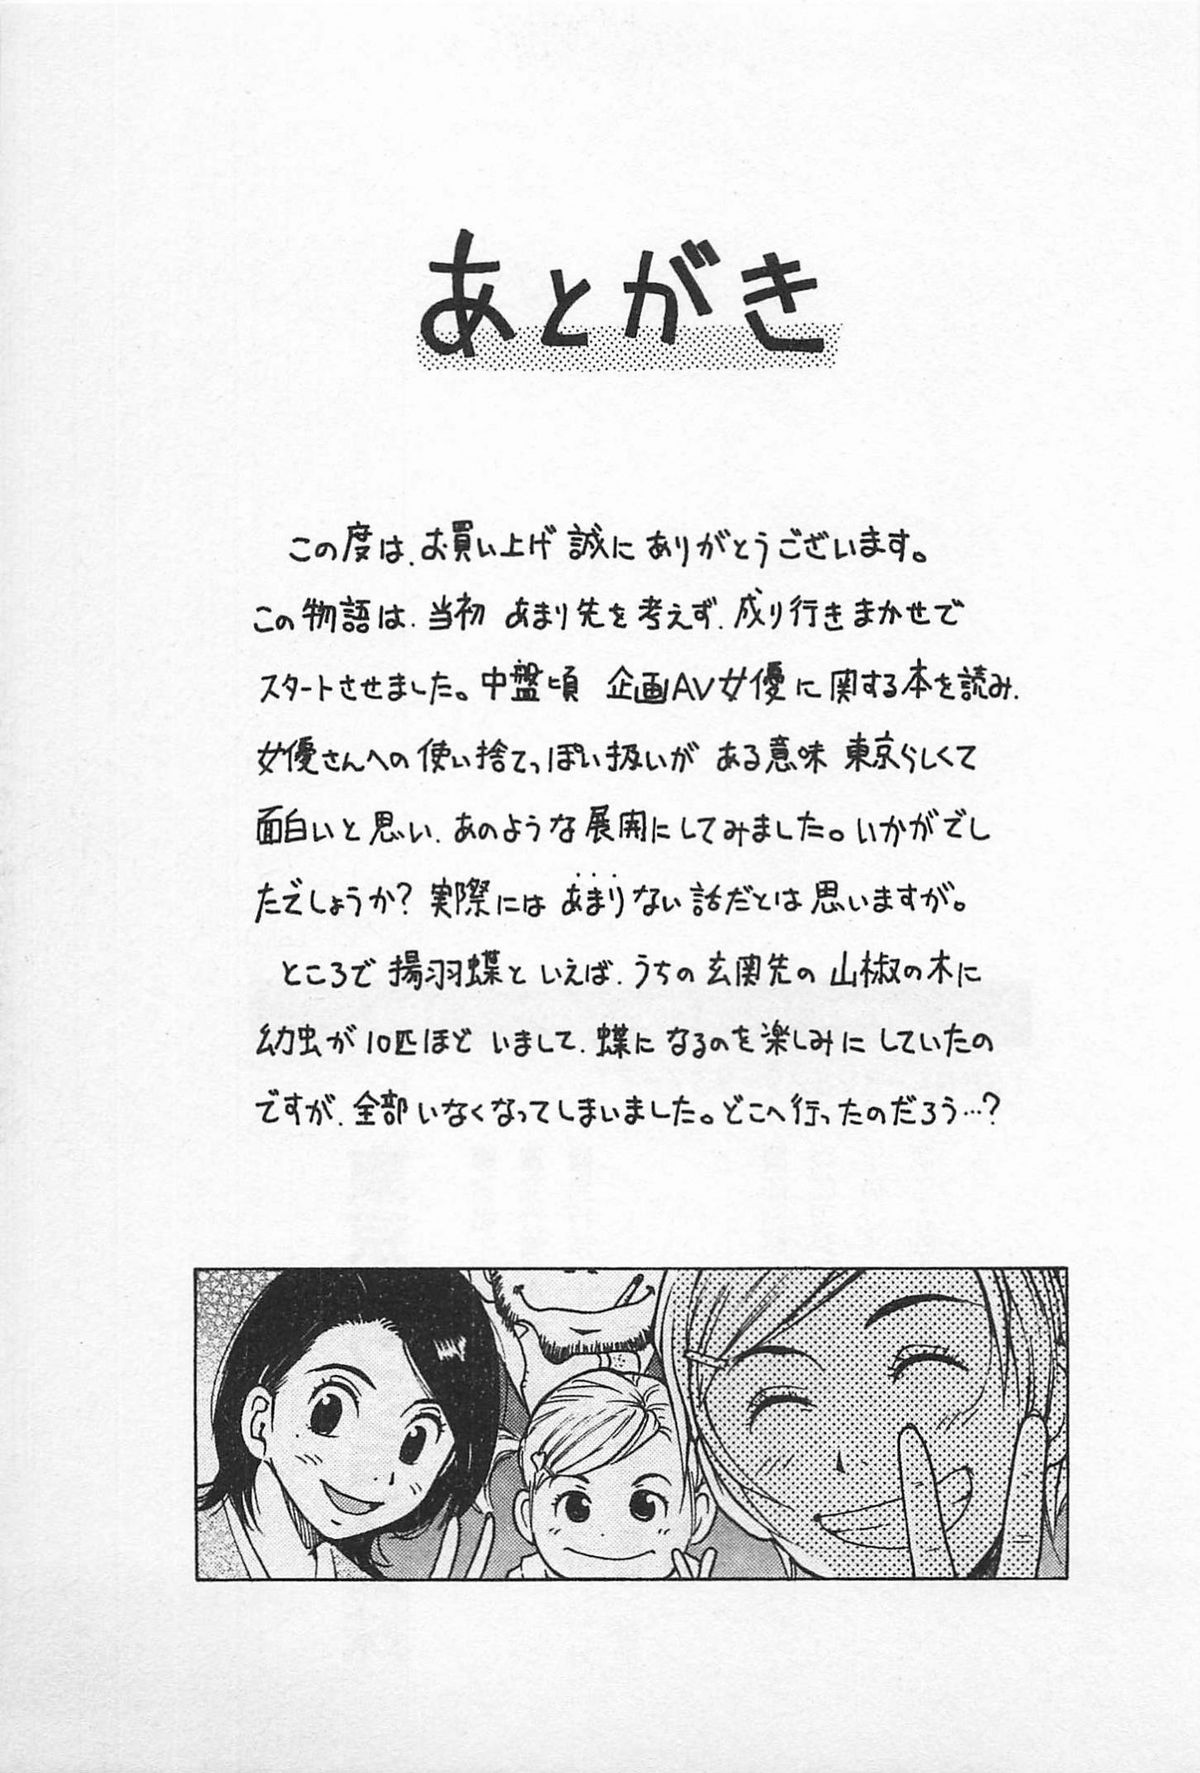 あとがき
この度は、お買い上げ 誠に ありがとうございます。
この物語は、当初 あまり先を考えず、成り行きまかせで
スタートさせました。中盤頃 企画AV女優に関する本を読み、
女優さんへの使い捨てっぽい扱いが ある意味 東京らしくて
面白いと思い、あのような展開にしてみました。いかがでし
たでしょうか？ 実際には あまりない話だとは思いますが。
ところで 揚羽蝶と いえば、うちの玄関先の 山椒の木に
幼虫が 10匹ほど いまして、蝶に なるのを楽しみに していたの
ですが、全部いなくなってしまいました。どこへ行ったのだろう…？